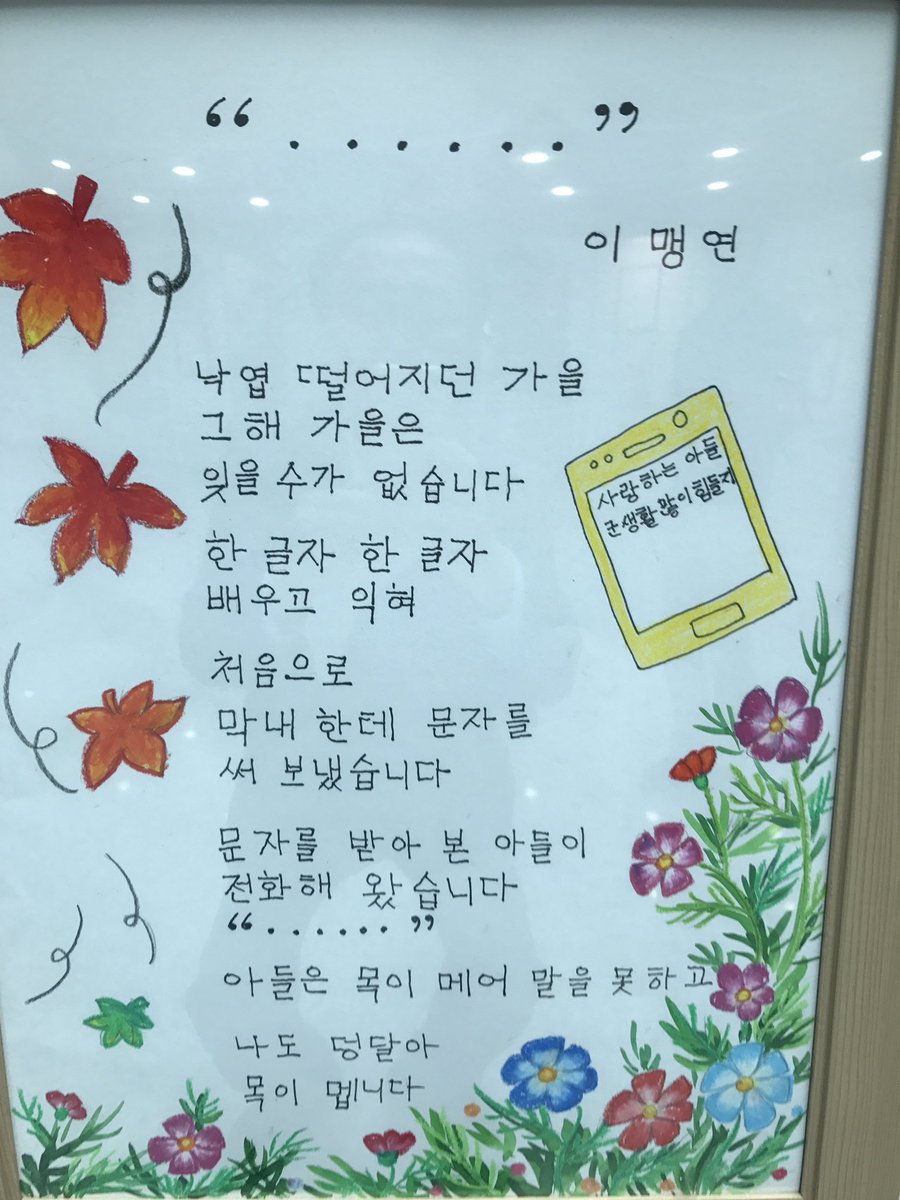 “ . . . . . . ”
이 맹 연
낙엽 떨어지던 가을
그해 가을은
잊을 수가 없습니다
한 글자 한 글자
배우고 익혀
처음으로
막내 한테 문자를
써 보냈습니다
사랑하는 아들
군생활 많이 힘들지
문자를 받아 본 아들이
전화해 왔습니다
“ . . . . . . ”
아들은 목이 메어 말을 못하고
나도 덩달아
목이 멥니다